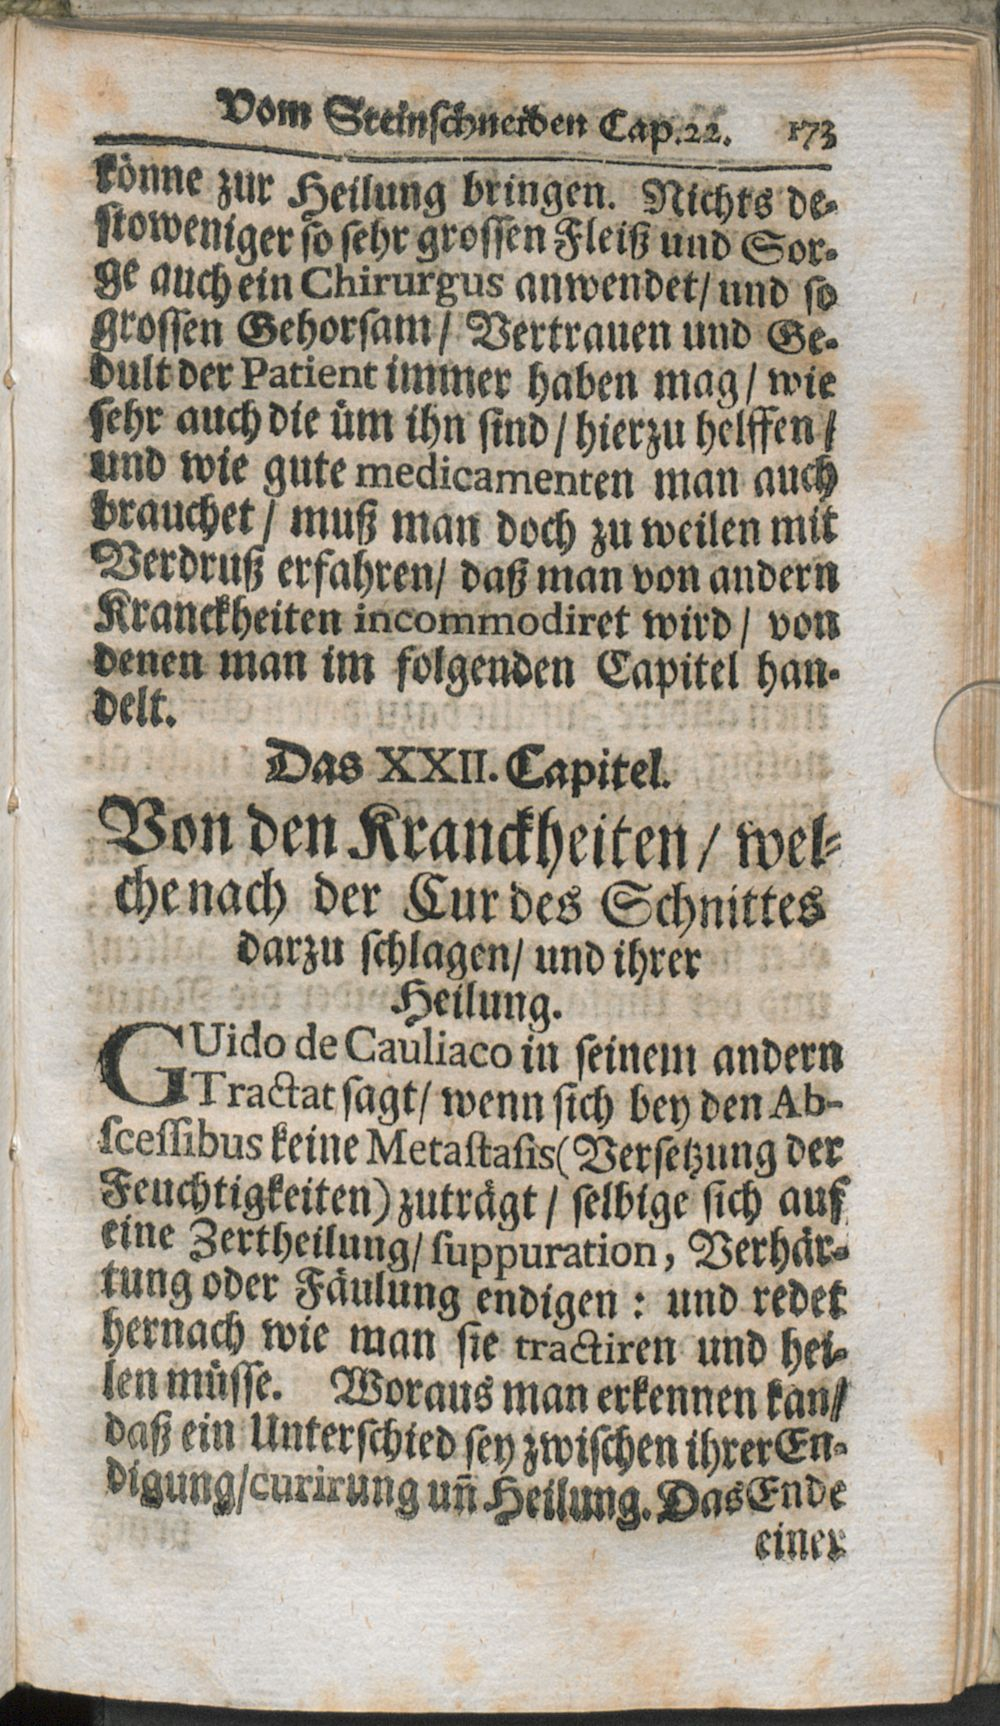 Vom Steinschneiden Cap.22. 173
könne zur Heilung bringen. Nichts de-
stoweniger so sehr grossen Fleiß und Sor-
ge auch ein Chirurgus anwendet/ und so
grossen Gehorsam/ Vertrauen und Ge-
dult der Patient immer haben mag/ wie
sehr auch die üm ihn sind/ hierzu helffen/
und wie gute medicamenten man auch
brauchet/ muß man doch zu weilen mit
Verdruß erfahren/ daß man von andern
Kranckheiten incommodiret wird/ von
denen man im folgenden Capitel han-
delt.
Das XXII. Capitel.
Von den Kranckheiten/ wel-
che nach der Cur des Schnittes
darzu schlagen/ und ihrer
Heilung.
GUido de Cauliaco in seinem andern
Tractat sagt/ wenn sich bey den Ab-
scessibus keine Metastasis (Versetzung der
Feuchtigkeiten) zuträgt/ selbige sich auf
eine Zertheilung/ suppuration, Verhär-
tung oder Fäulung endigen: und redet
hernach wie man sie tractiren und hei-
len müsse. Woraus man erkennen kan/
daß ein Unterschied sey zwischen ihrer En-
digung/ curirung uñ Heilung. Das Ende
einer